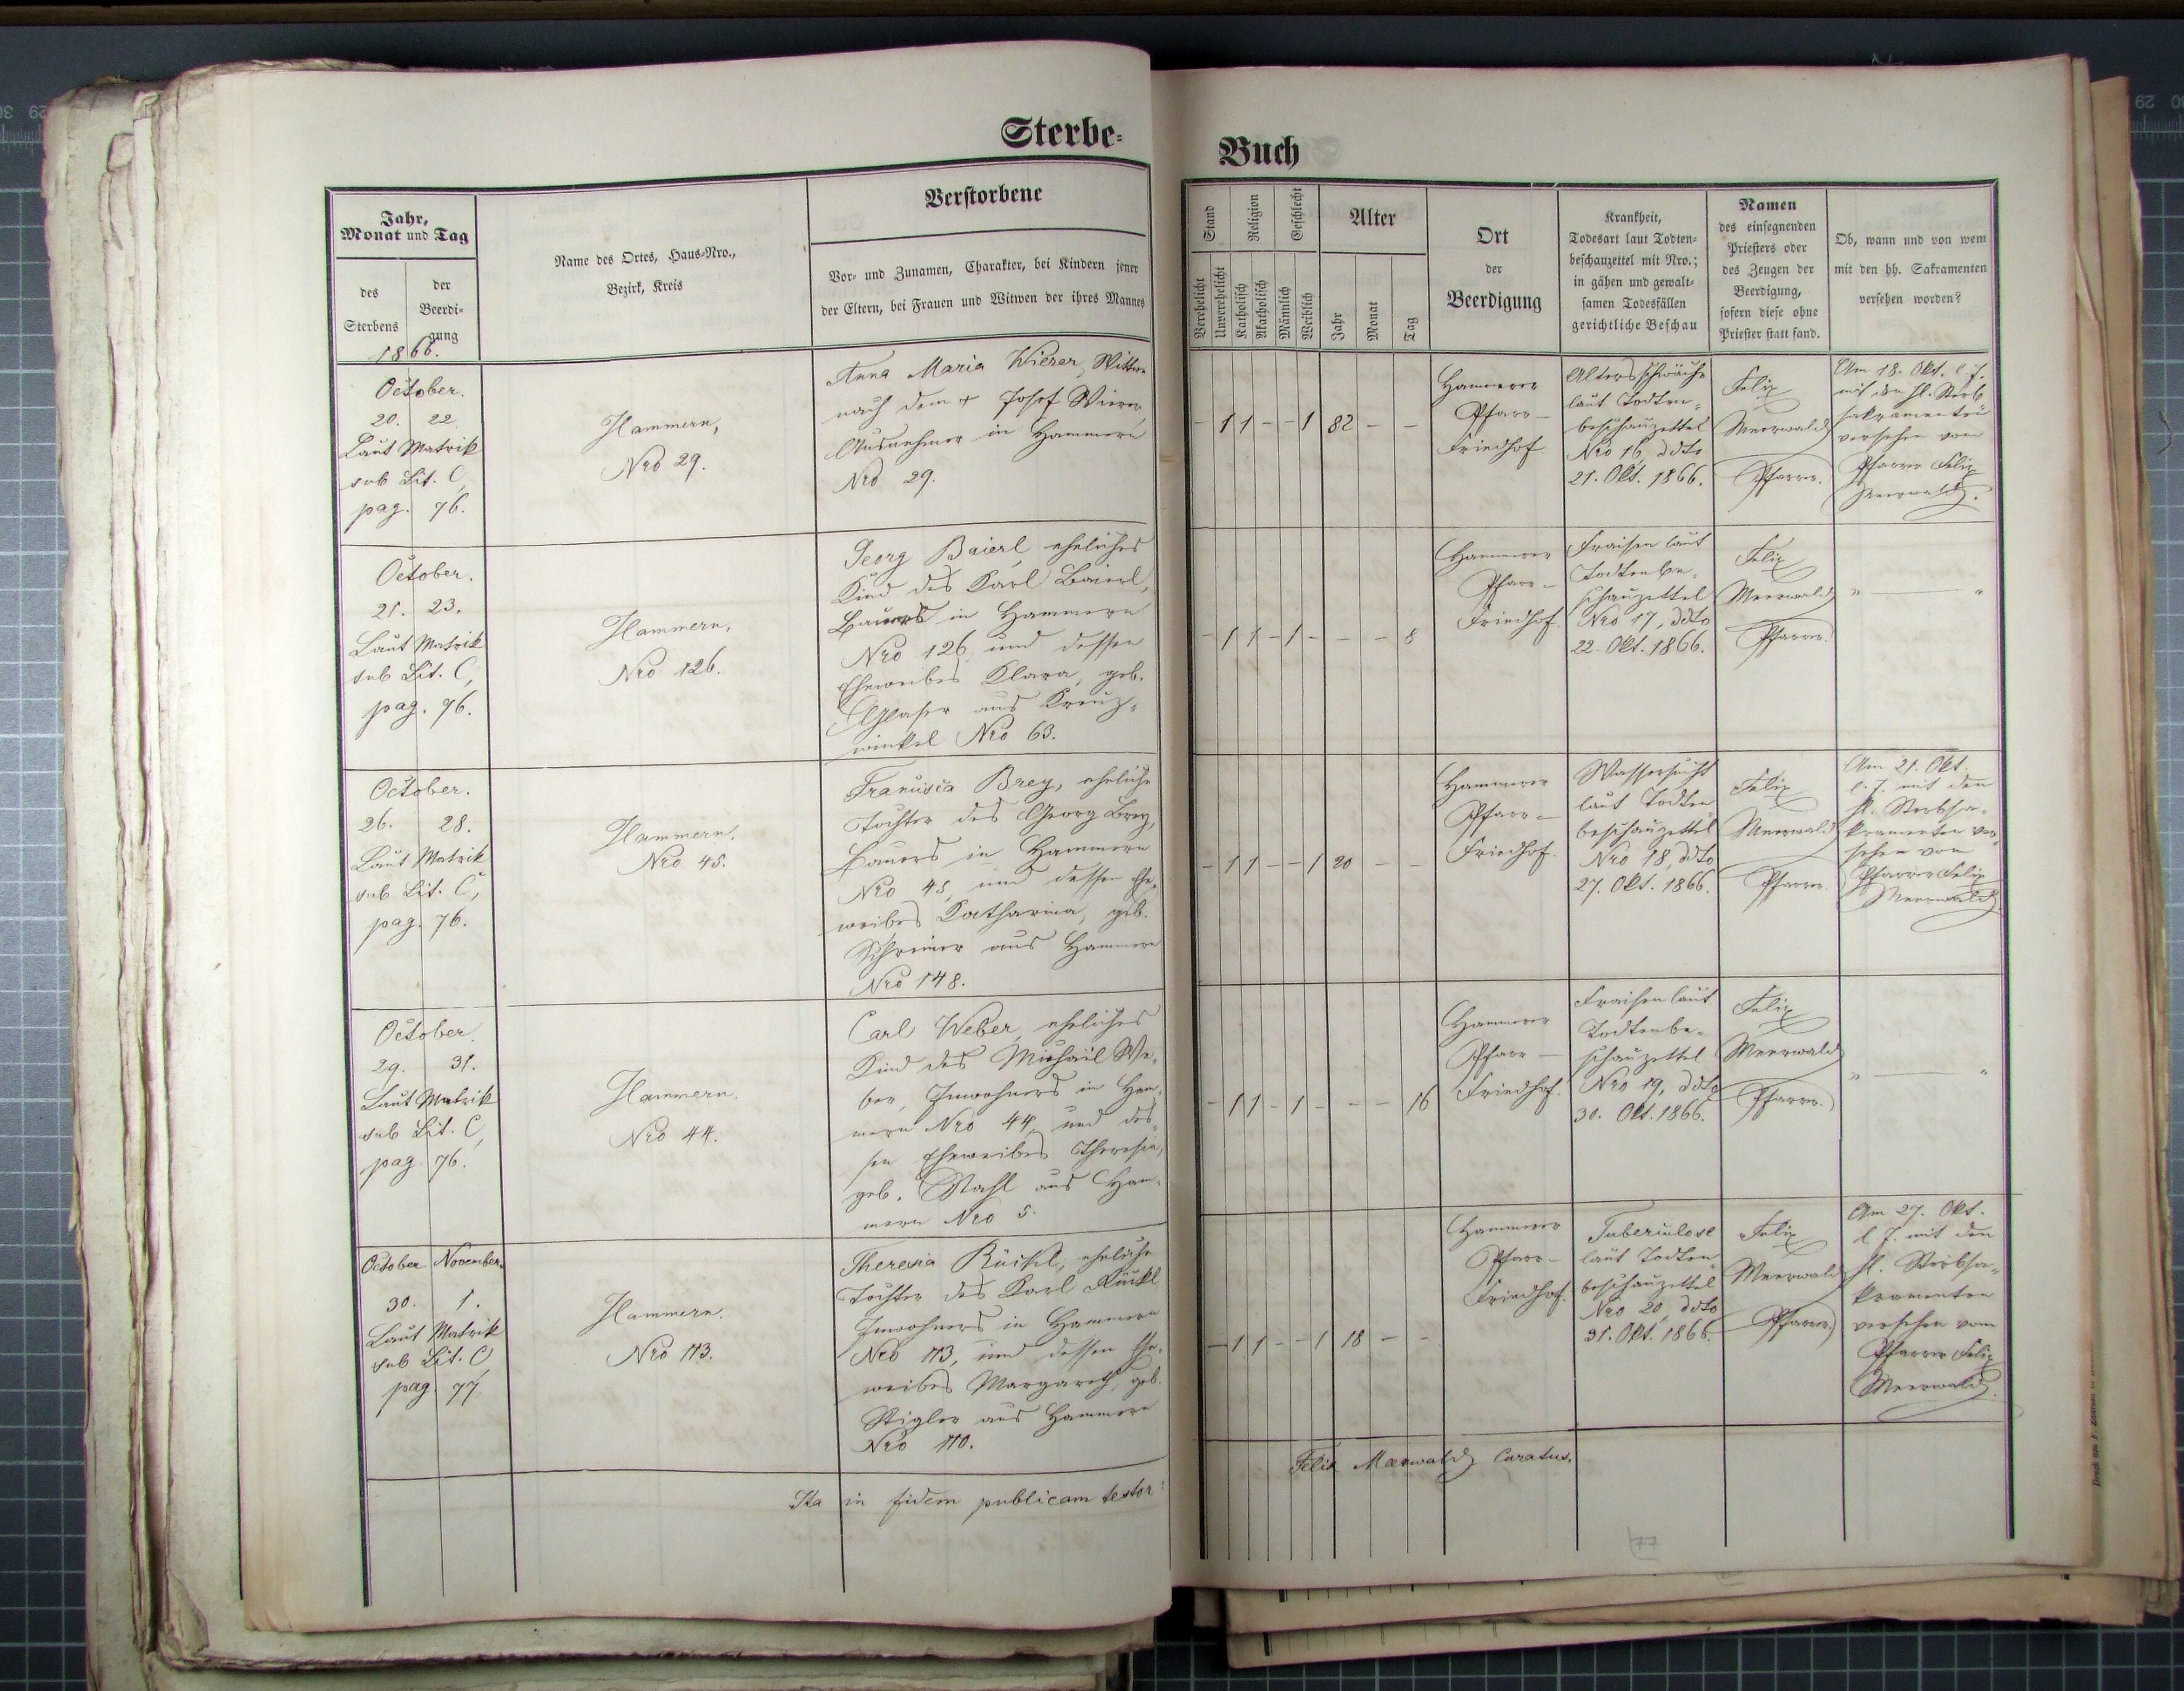 Sterbe-
Buch
Jahr,
Monat und Tag
des
Sterbens
der
Beerdi-
gung
Name des Ortes, Haus-Nro.,
Bezirk, Kreis
Verstorbene
Vor- und Zunamen, Charakter, bei Kindern jener
der Eltern, bei Frauen und Witwen der ihres Mannes
Stand
Religion
Geschlecht
Alter
Verehelicht
Unverehelicht
Katholisch
Akatholisch
Männlich
Weiblich
Jahr
Monat
Tag
Ort
der
Beerdigung
Krankheit,
Todesart laut Todten-
beschauzettel mit Nro.;
in gähen und gewalt-
samen Todesfällen
gerichtliche Beschau
Namen
des einsegnenden
Priesters oder
des Zeugen der
Beerdigung,
sofern diese ohne
Priester statt fand.
Ob, wann und von wem
mit den hh. Sakramenten
versehen worden?
1866.
October.
20. 22.
Laut Matrik
sub Lit. C,
pag. 76.
Hammern,
Nro 29.
Anna Maria Wierer, Wittwe
nach dem + Josef Wierer,
Ausnehmer in Hammern
Nro 29.
- 1 1 - - 1 82 - -
Hammerer
Pfarr-
Friedhof
Altersschwäche
laut Todten-
beschauzettel
Nro 16, ddto
21. Okt. 1866.
Felix
Meerwald
Pfarrer.
Am 18. Okt. l. J.
mit den hl. Sterb
sakramenten
versehen vom
Pfarrer Felix
Meerwald.
October.
21. 23.
Laut Matrik
sub Lit. C,
pag. 76.
Hammern,
Nro 126.
Georg Baierl, eheliches
Kind des Karl Baierl,
Bauers in Hammern
Nro 126 und dessen
Eheweibes Klara, geb.
Glaser aus Kreuz-
winkel Nro 63.
- 1 1 - 1 - - - 8
Hammerer
Pfarr-
Friedhof.
Fraisen laut
Todtenbe-
schauzettel
Nro 17, ddto
22. Okt. 1866.
Felix
Meerwald
Pfarrer.
" — "
October.
26. 28.
Laut Matrik
sub Lit. C,
pag. 76.
Hammern.
Nro 45.
Francisca Brey, eheliche
Tochter des Georg Brey,
Bauers in Hammern
Nro 45, und dessen Ehe-
weibes Katharina, geb.
Schreiner aus Hammern
Nro 148.
- 1 1 - - 1 20 - -
Hammerer
Pfarr-
Friedhof.
Wassersucht
laut Todten
beschauzettel
Nro 18, ddto
27. Okt. 1866.
Felix
Meerwald
Pfarrer.
Am 21. Okt.
l. J. mit den
hl. Sterbsa-
kramenten ver
sehen vom
Pfarrer Felix
Meerwald
October.
29. 31.
Laut Matrik
sub Lit. C,
pag. 76.
Hammern.
Nro 44.
Carl Weber, eheliches
Kind des Michail We-
ber, Inwohners in Ham-
mern Nro 44, und des-
sen Eheweibes Theresia,
geb. Stahl aus Ham-
mern Nro 5.
- 1 1 - 1 - - - 16
Hammerer
Pfarr-
Friedhof.
Fraisen laut
Todtenbe-
schauzettel
Nro 19, ddto
30. Okt. 1866.
Felix
Meerwald
Pfarrer.
" — "
October November
30. 1.
Laut Matrik
sub Lit. C,
pag. 77
Hammern.
Nro 113.
Theresia Rückl, eheliche
Tochter des Karl Rückl
Inwohners in Hammern
Nro 113, und dessen Ehe-
weibes Margareth, geb.
Stigler aus Hammern
Nro 110.
- 1 1 - - 1 18 - -
Hammerer
Pfarr-
Friedhof.
Tuberculose
laut Todten
beschauzettel
Nro 20, ddto
31. Okt. 1866.
Felix
Meerwald
Pfarrer.
Am 27. Okt.
l. J. mit den
hl. Sterbsa-
kramenten
versehen vom
Pfarrer Felix
Meerwald.
Ita in fidem publicam testor:
Felix Maerwald Curatus.
77